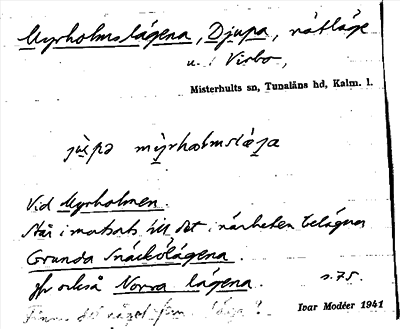 Myrholmslägena, Djupa, nätläge
u. Virbo,
Misterhults sn, Tunaläns hd, Kalm. l.
Vid Myrholmen.
Står i motsats till det i närheten belägna
Grunda Snäckölägena.
Jfr också Norra lägena. s. 75.
Ivar Modéer 1941